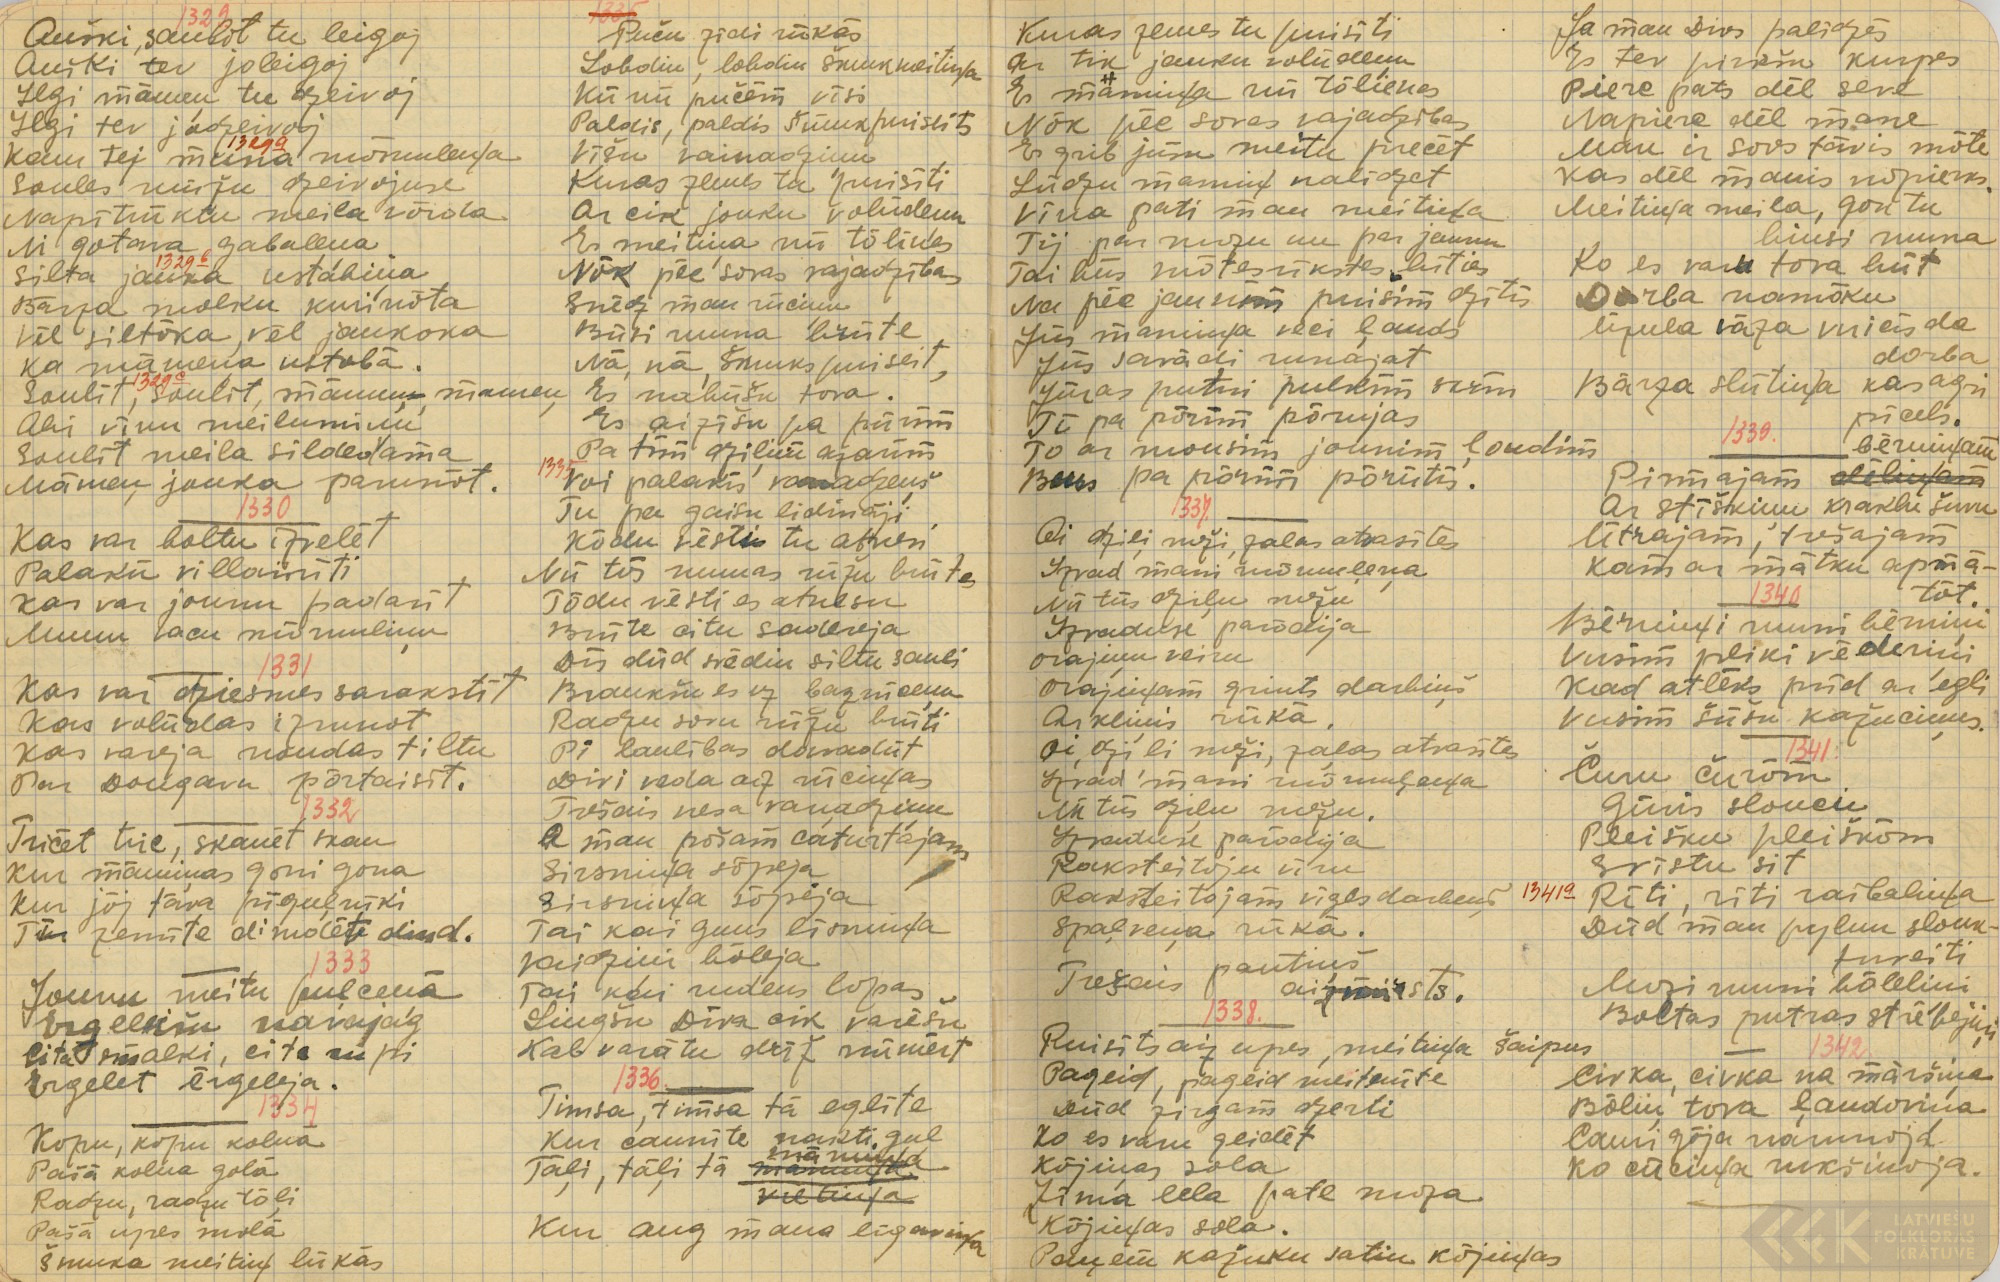 1329
Auški, saulīt tu leigoj
Auški tev joleigoj
Ilgi māmeņ tu dzeivoj
Ilgi tev jodzeivoj
1329a
Kam tej muna mōmuleņa
Saules mūžu dzeivojuse
Napītrūktu meila vōrda
Ni gotava gabaleņa
1329b
Silta jauka ustabiņa
Bārza molku kurinōta
Vēl siltōka, vēl jaukoka
Ka māmeņa ustabā.
1329c
Saulīt, saulīt, māmeņ, māmeņ,
Abi vīnu meilumiņu
Saulīt meila sildeidama
Māmeņ jauka parunōt.
1330
Kas var boltu izvelēt
Palākū villainīti
Kas var jaunu padarīt
Munu vacu mōmuliņu
1331
Kas var dziesmes sarakstīt
Kas volūdas izrunot
Kas vareja naudas tiltu
Par Daugavu pōrtaisīt.
1332
Tricēt tric, skanēt skan
Kur māmiņas goni gona
Kur jōj tāva pīguļnīki
Tur zemīte dimdēt dimd.
1333
Jaunu meitu puļceņā
Ērgelnīku navajag
Cita smalki, cita rupi
Ērgelēt ērgeleja.
1334
Kopu, kopu kolnā
Pašā kolna golā
Radzu, radzu tōļi
Pašā upes molā
Smuka meitiņ lūkās
1335
Puču zīdi rūkās
Lobdin, lobdin smuk meitiņa
Kū nū pučem vīsi
Paldis, paldis smuk puiseits
Vīšu vainadziņu
Kuras zemes tu puisīti
Ar cik jouku volūdeņu
Es meitiņa nū tōlines
Nōk pēc sovas vajadzības
Snēdz man rūciņu
Būsi muna brūte
Nā, nā, smuks puiseit,
Es nabūšu tova.
Es aizīšu pa pūrim
Pa tim dziļim azarim
1335
Voi palākīs vanadzeņš
Tu pa gaisu lidinōji
Kōdu vēsti tu atnesi
Nū tōs munas rūžu brūtes
Tōdu vēsti es atnesu
Brūte citu sadereja
Dīs dūd svēdin siltu sauli
Braukšu es uz bazneicu
Radzu sovu rūžu brūti
Pi laulības dorradūt
Divi veda aiz rūciņas
Trešais nesa vanadziņu
A man pošam caturtajam
Sirsniņa sōpeja
Sirsniņa sōpeja
Tai kai guņs līsmiņa
Vaidziņi bōleja
Tai kai rudens lopas
Lūgšu Diva cik varēšu
Kab varātu drīž nūmērt
1336
Timsa, timsa tā eglīte
Kur caunīte nakti guļ
Tāļi, tāļi tā māmiņa
Kur aug mana līgaviņa
Kuras zemes tu puisīti
Ar tik jauku volūdeņu
Es māmiņa nū tōlienes
Nōk pēc sovas vajadzības
Es grib jūsu meitu precēt
Lūdzu māmiņ nalīdzet
Vīna pati man meitiņa
Tij par mozu un par jaunu
Tai būs mōtes rīkstes bīties
Na pēc jaunim puišim dzītīs
Jūs māmiņa veci ļauds
Jūs savādi runājat
Jūras putni pulkim skrin
Tī pa pōrim pōrujas
To ar mousim jaunim ļaudim
Beus pa pōrim pōrītis.
1337.
Oi dziļi meži, zaļas atvasītes
Izvad mani mōmuleņa
Nū tūs dziļu mežu
Izvaduse parōdija
Orajiņu veiru
Orajiņam grūts darbiņš
Arklinis rūkā.
Oi, dziļi meži, zaļas atvasītes
Izvad mani mōmuļeņa
Nū tūs dziļu mežu.
Izvaduse parōdija
Raksteitoju vīru
Raksteitojam vīgls darbeņš
Spaļveņa rūkā.
Trešais pantiņš
aizmirsts.
1338.
Puisīts aiz upes, meitiņa šaipus
Pageid, pageid meitenīte
Dūd zirgam dzerti
Ko es varu geidēt
Kōjiņas sola
Zīma lela pate moza
Kōjiņas sola.
Paņem kažuku satin kōjiņas
Ja man Divs palīdzēs
Es tev pirkšu kurpes
Pierc pats dēl seve
Napierc dēl mane
Man ir sovs tāvis mōte
Kas dēl manis nūpierks.
Meitiņa meila, gon tu
būsi muna
Ko es varu tova būt
Darba namōku
Upula vāza vuicīs da
dorba
Bārza slūtiņa kas agri
pīcels.
1339.
bērniņam
Pirmajam
Ar stīškimu kraklu šuvu
Ūtrajam, trešajam
Kam ar mātku apmā-
tōt.
1340
Bērniņi muni bērniņi
Vusim pliki vēderiņi
Kad atlēks pūd ar egli
Vusim šūšu kažuciņus.
1341.
Čuru čurōm
Gūvis slouciu
Pleišku pleiškōm
Svīstu sit
1341a
Rīti, rīti raibaliņa
Dūd man pylnu slouk-
tuveiti
Mozi muni bōleliņi
Boltas putras strēbējiņi
1342
Civka, civka na mārciņa
Bōliņ tova ļaudoviņa
Cauri gōja narunojā
Ko cūciņa rukšinoja.
LATVIEŠU
FOLKLORAS
KRĀTUVE